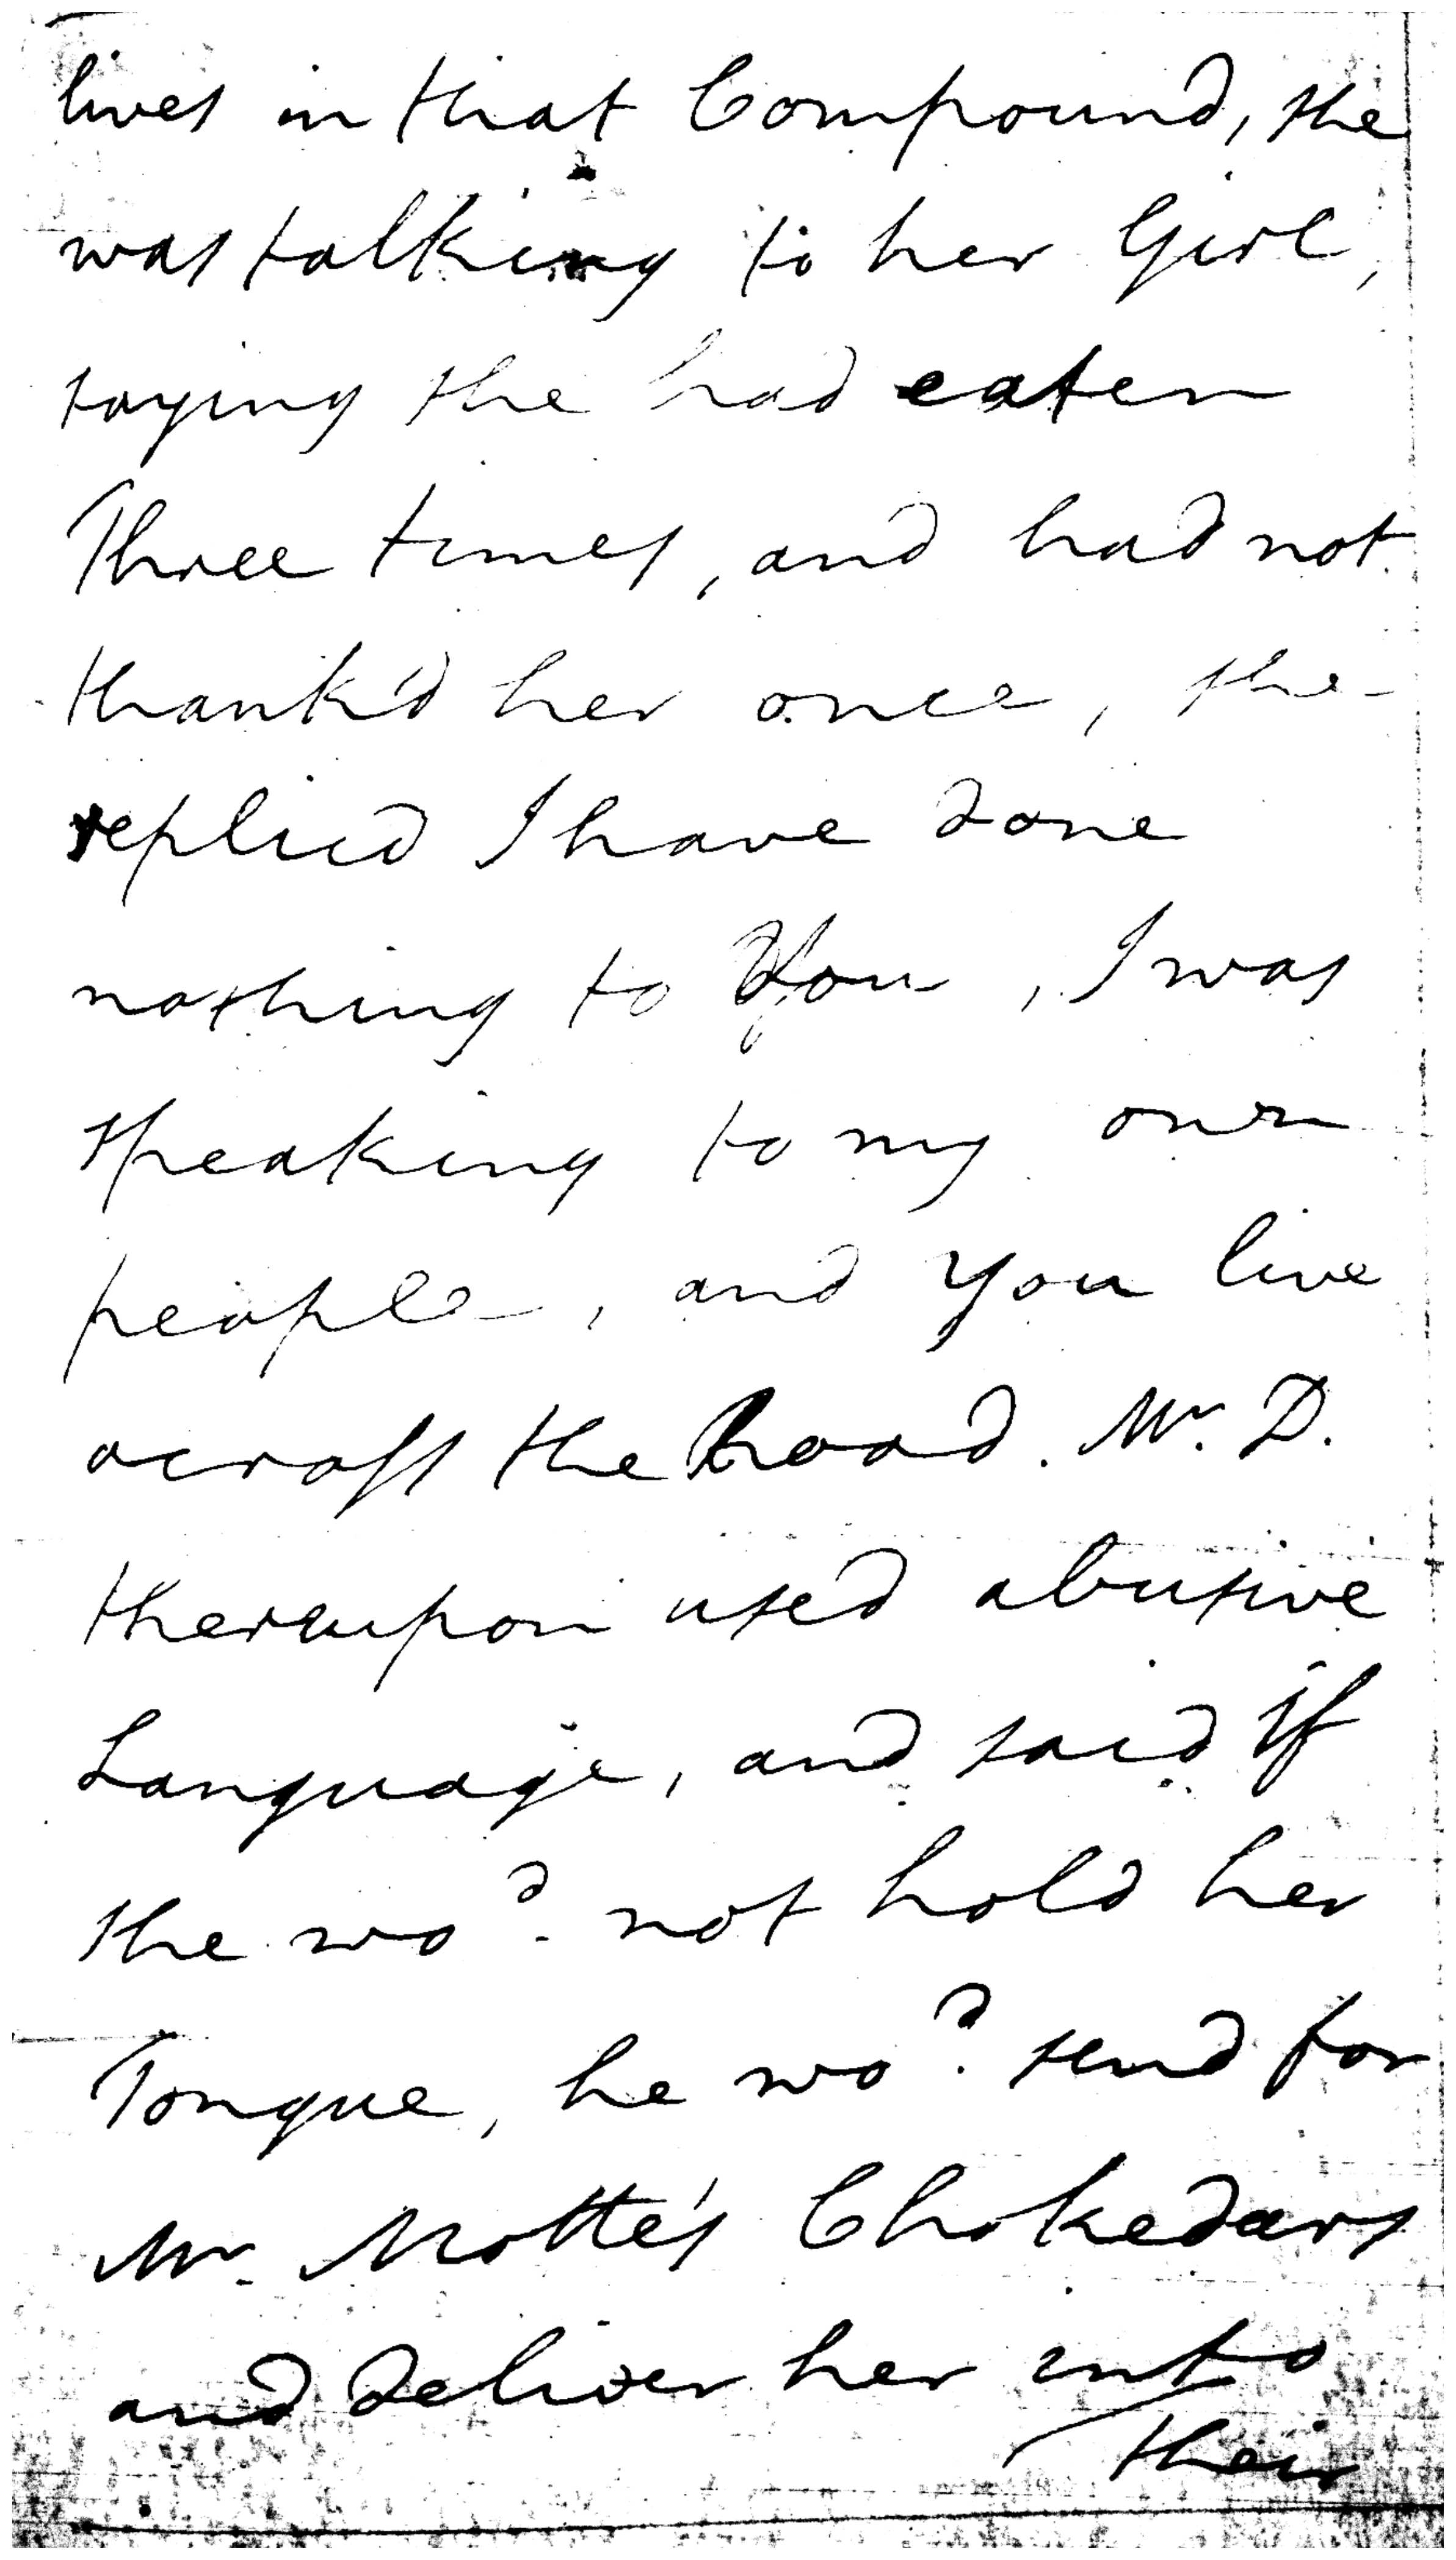 lives in that Compound, she
was talking to her Girl,
saying she had eaten
Three times, and had not
thank'd her once, she
replied I have done
nothing to You, I was
speaking to my own
people, and you live
across the Road. Mr. D.
thereupon used abusive
Language, and said if
she wod. not hold her
Tongue, he wod. send for
Mr. Motte's Chokedars
and deliver her into
their